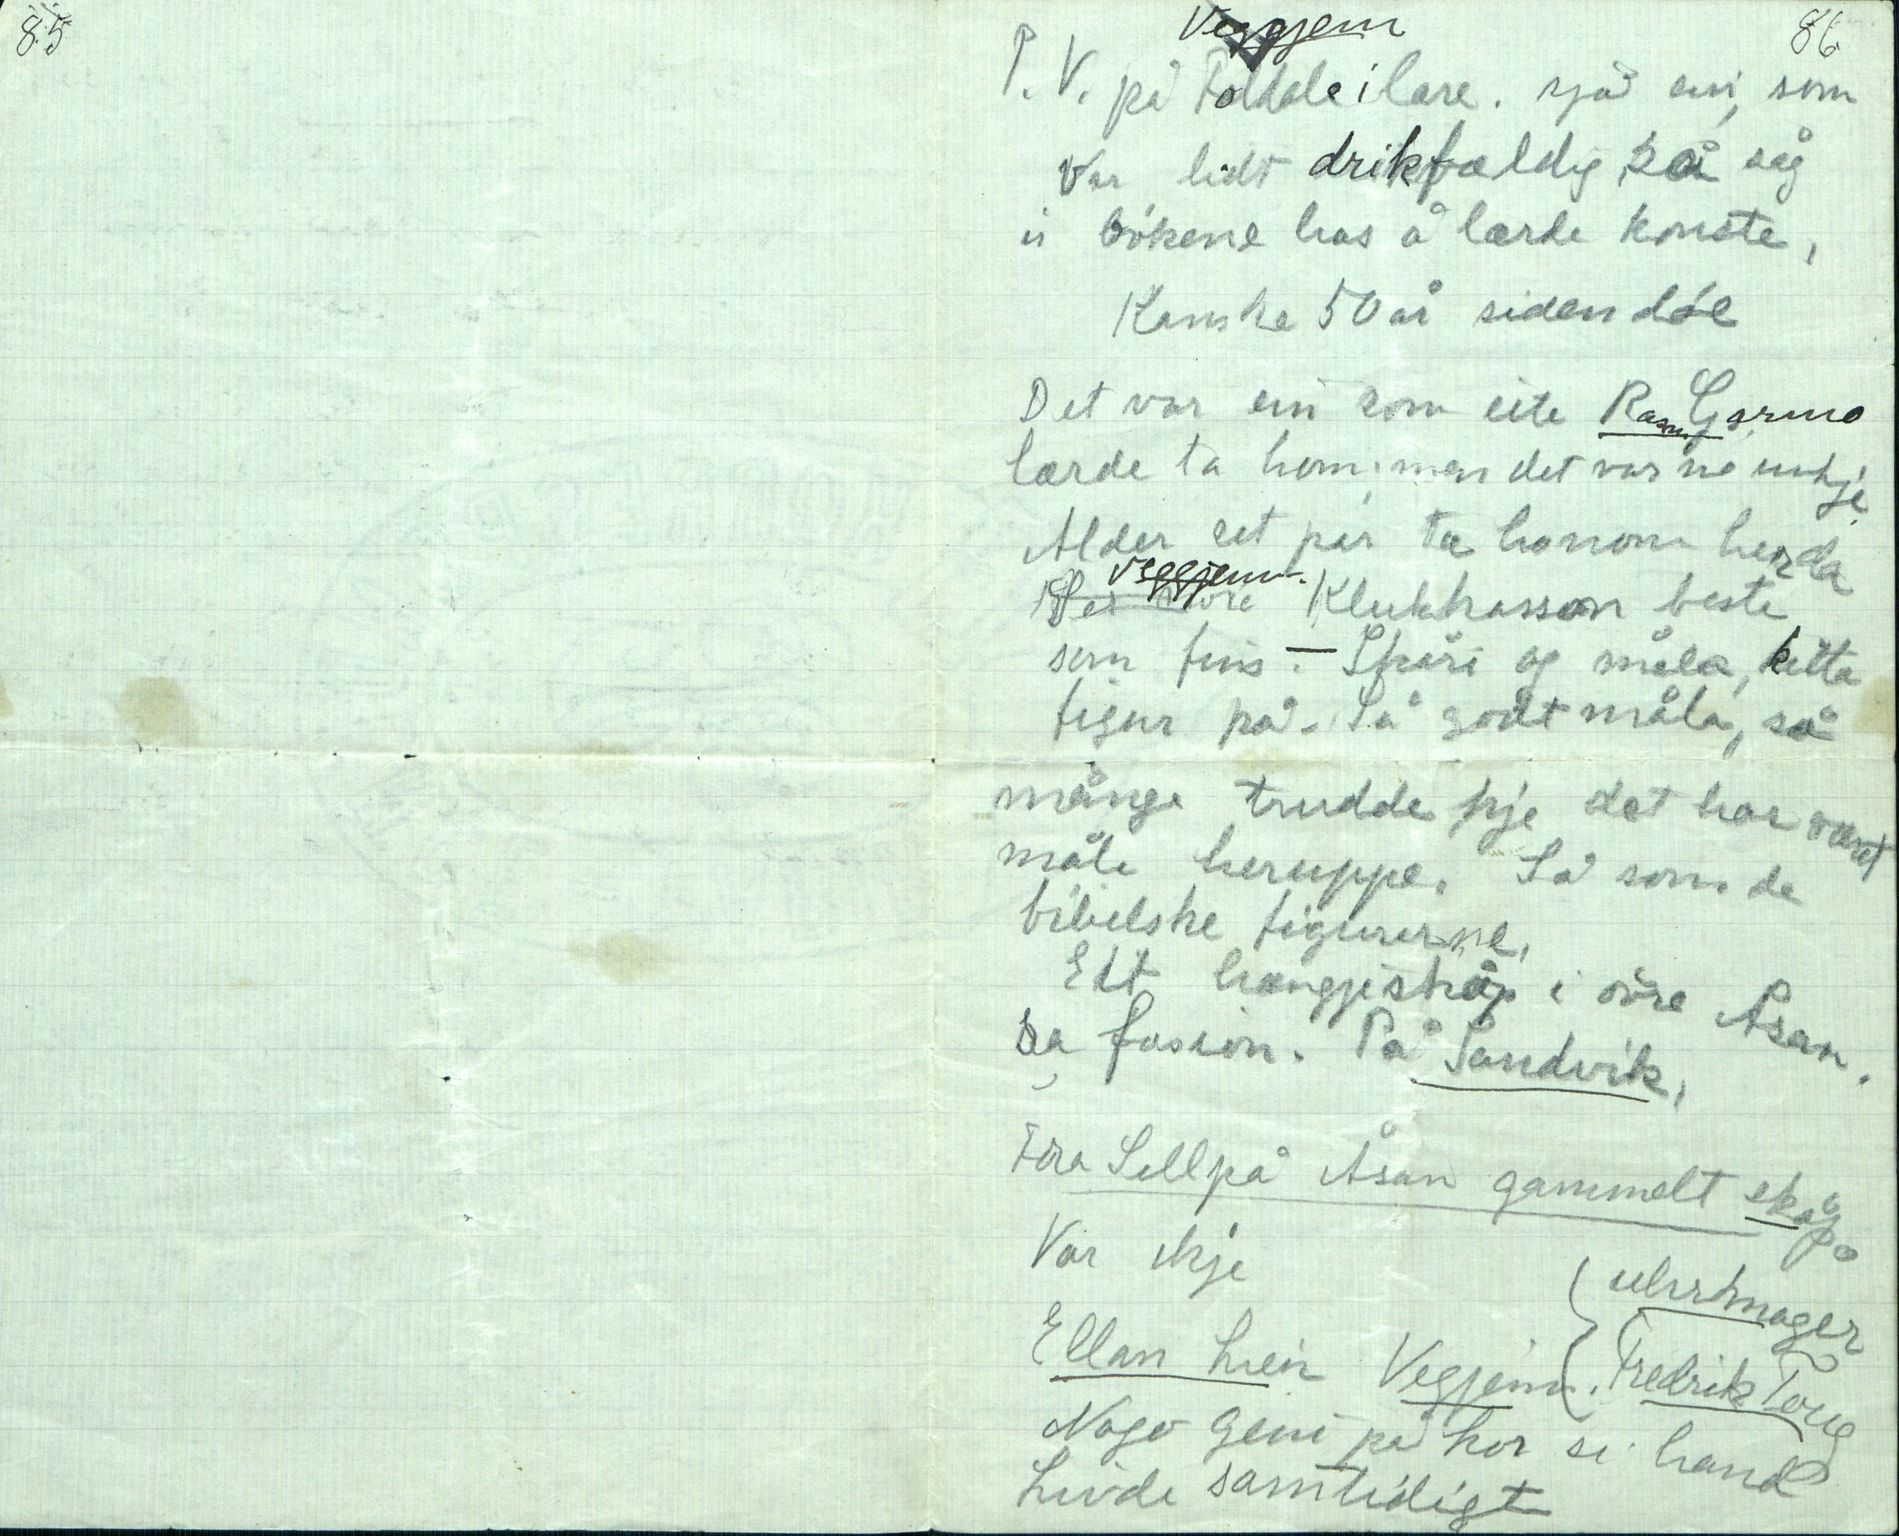 85
86
Veggjem
P. V. på Foldal i lære. sjå ein, som
Var lidt drikfældig, så såg
i bökene has å lærde konste,
Kanske 50 år siden döe
Det var ein som eite Rasm. Garmo
lærde ta hom, men det var no inkje
Alder set par ta honom herda
Veggjem.
Per Klukkarsson beste
som fins. – Skåri og måla, kitta
figur på. Så godt måla, så
månge trudde kje det har været
måli heruppe. Så som de
bibelske figurerne.
Eit hængjiskåp i övre Åsan.
Sa fasion. På Sandvik,
Fra Sell på Åsan gammelt skåp.
Var ikje
uhrmager
Ellan Lien Veggjem. Fredrik
Nogo Geni på kor si hand
Livde samtidigt